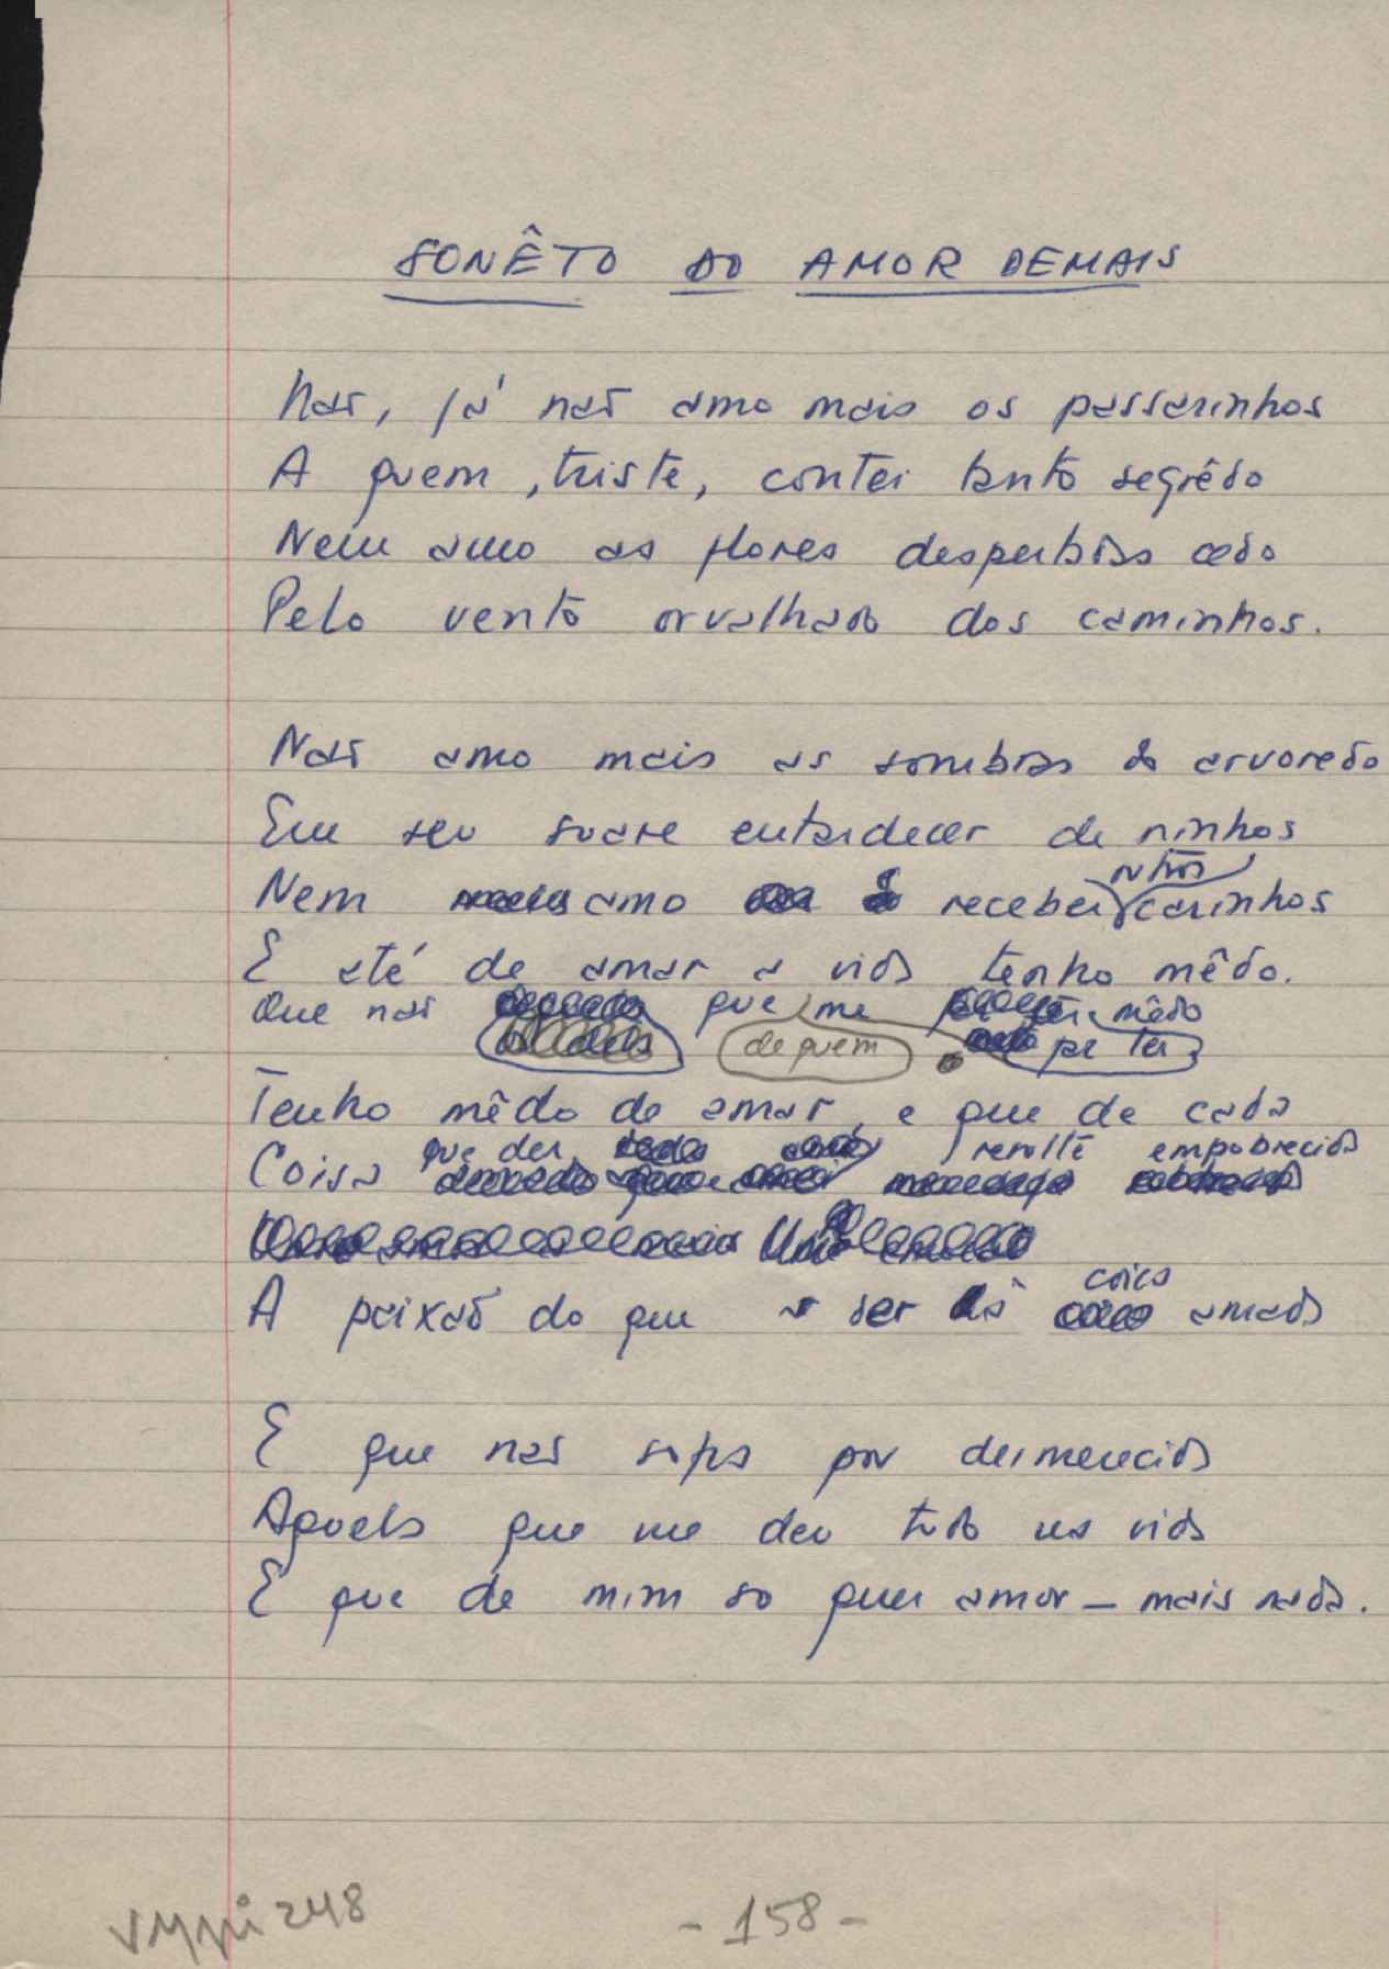 SONÊTO DO AMOR DEMAIS
Não, já não amo mais os passarinhos
A quem, triste, contei tanto segrêdo
Nem amo as flores despertadas cedo
Pelo vento orvalhado dos caminhos.
Não amo mais as sombras do arvoredo
Em seu suave entardecer de ninhos
outros
Nem amo receber carinhos
E até de amar a vida tenho mêdo.
Que não que me mêdo
de quem
Tenho mêdo de amar, e que de cada
que der resulte empobrecida
Coisa
coisa
A paixão do que a ser à amada
E que não sofra por desmerecida
Aquela que me deu tudo na vida
E que de mim so quer amor - mais nada.
248
- 158 -